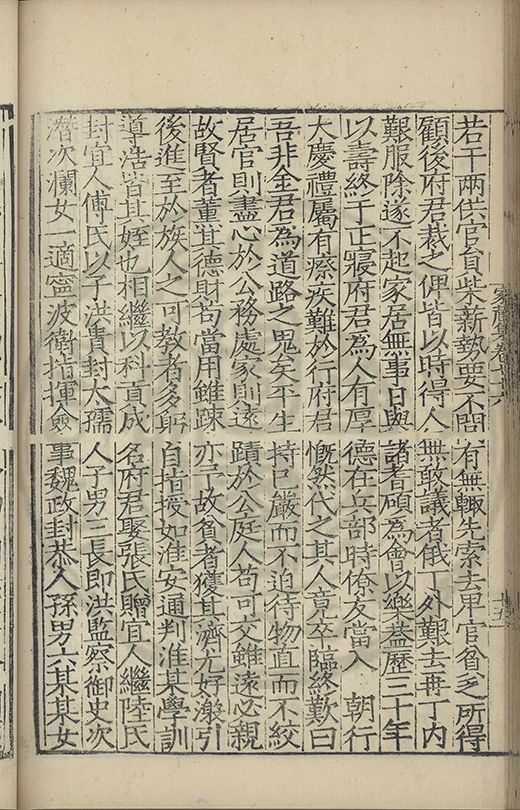 若干兩供官員柴薪勢要不問有無輒先索去卑官貧乏所得
顧後府君裁之俾皆以時得人無敢議者俄丁外艱去再丁内
艱服除遂不起家居無事日與諸耆碩為會以樂蓋歷三十年
以壽終于正寢府君為人有厚德在兵部時僚友當入　朝行
大慶禮屬有瘵疾難於行府君慨然代之其人竟卒臨終歎曰
吾非金君為道路之鬼矣平生持己嚴而不迫待物直而不絞
居官則盡心於公務處家則遠蹟於公庭人苟可交雖遠必親
故賢者董其德財苟當用雖踈亦予故貧者獲其濟尤好激引
後進至於族人之可教者多躬自指授如淮安通判淮某學訓
導浩皆其姪也相繼以科貢成名府君娶張氏贈宜人繼陸氏
封宜人傅氏以子洪貴封太孺人子男三長即洪監察御史次
濳次瀾女一適寧波衛指揮僉事魏政封恭人孫男六某某女